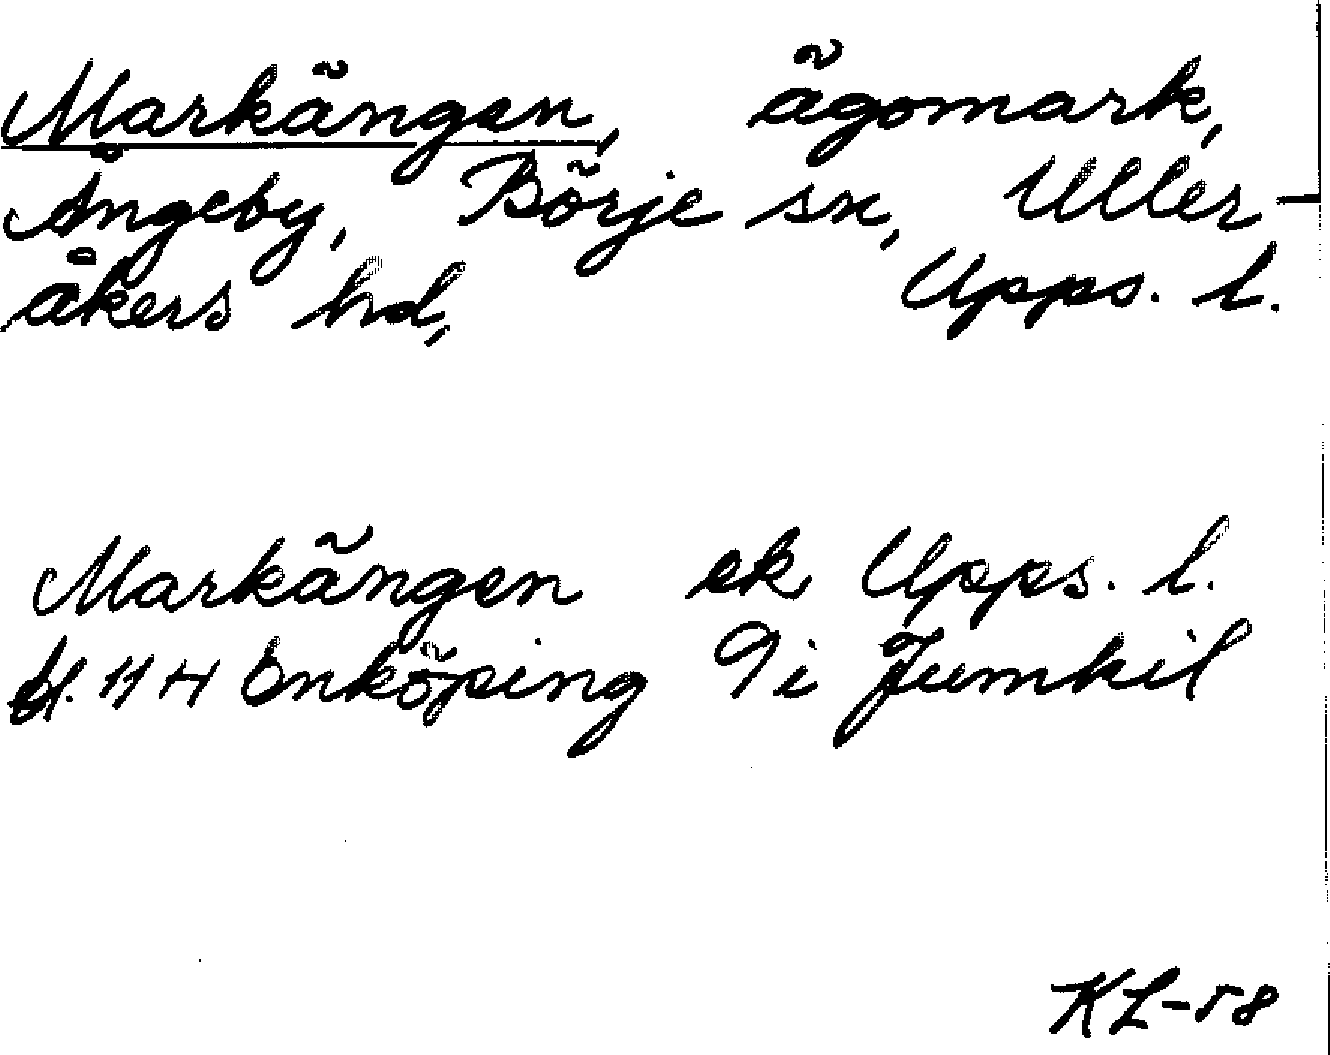 Markängen, ägomark,
Ängeby, Börje sn, Uller-
åkers hd, Upps. l.
Markängen ek Upps. l.
bl. 11 H Enköping 9i Jumkil
KL-58